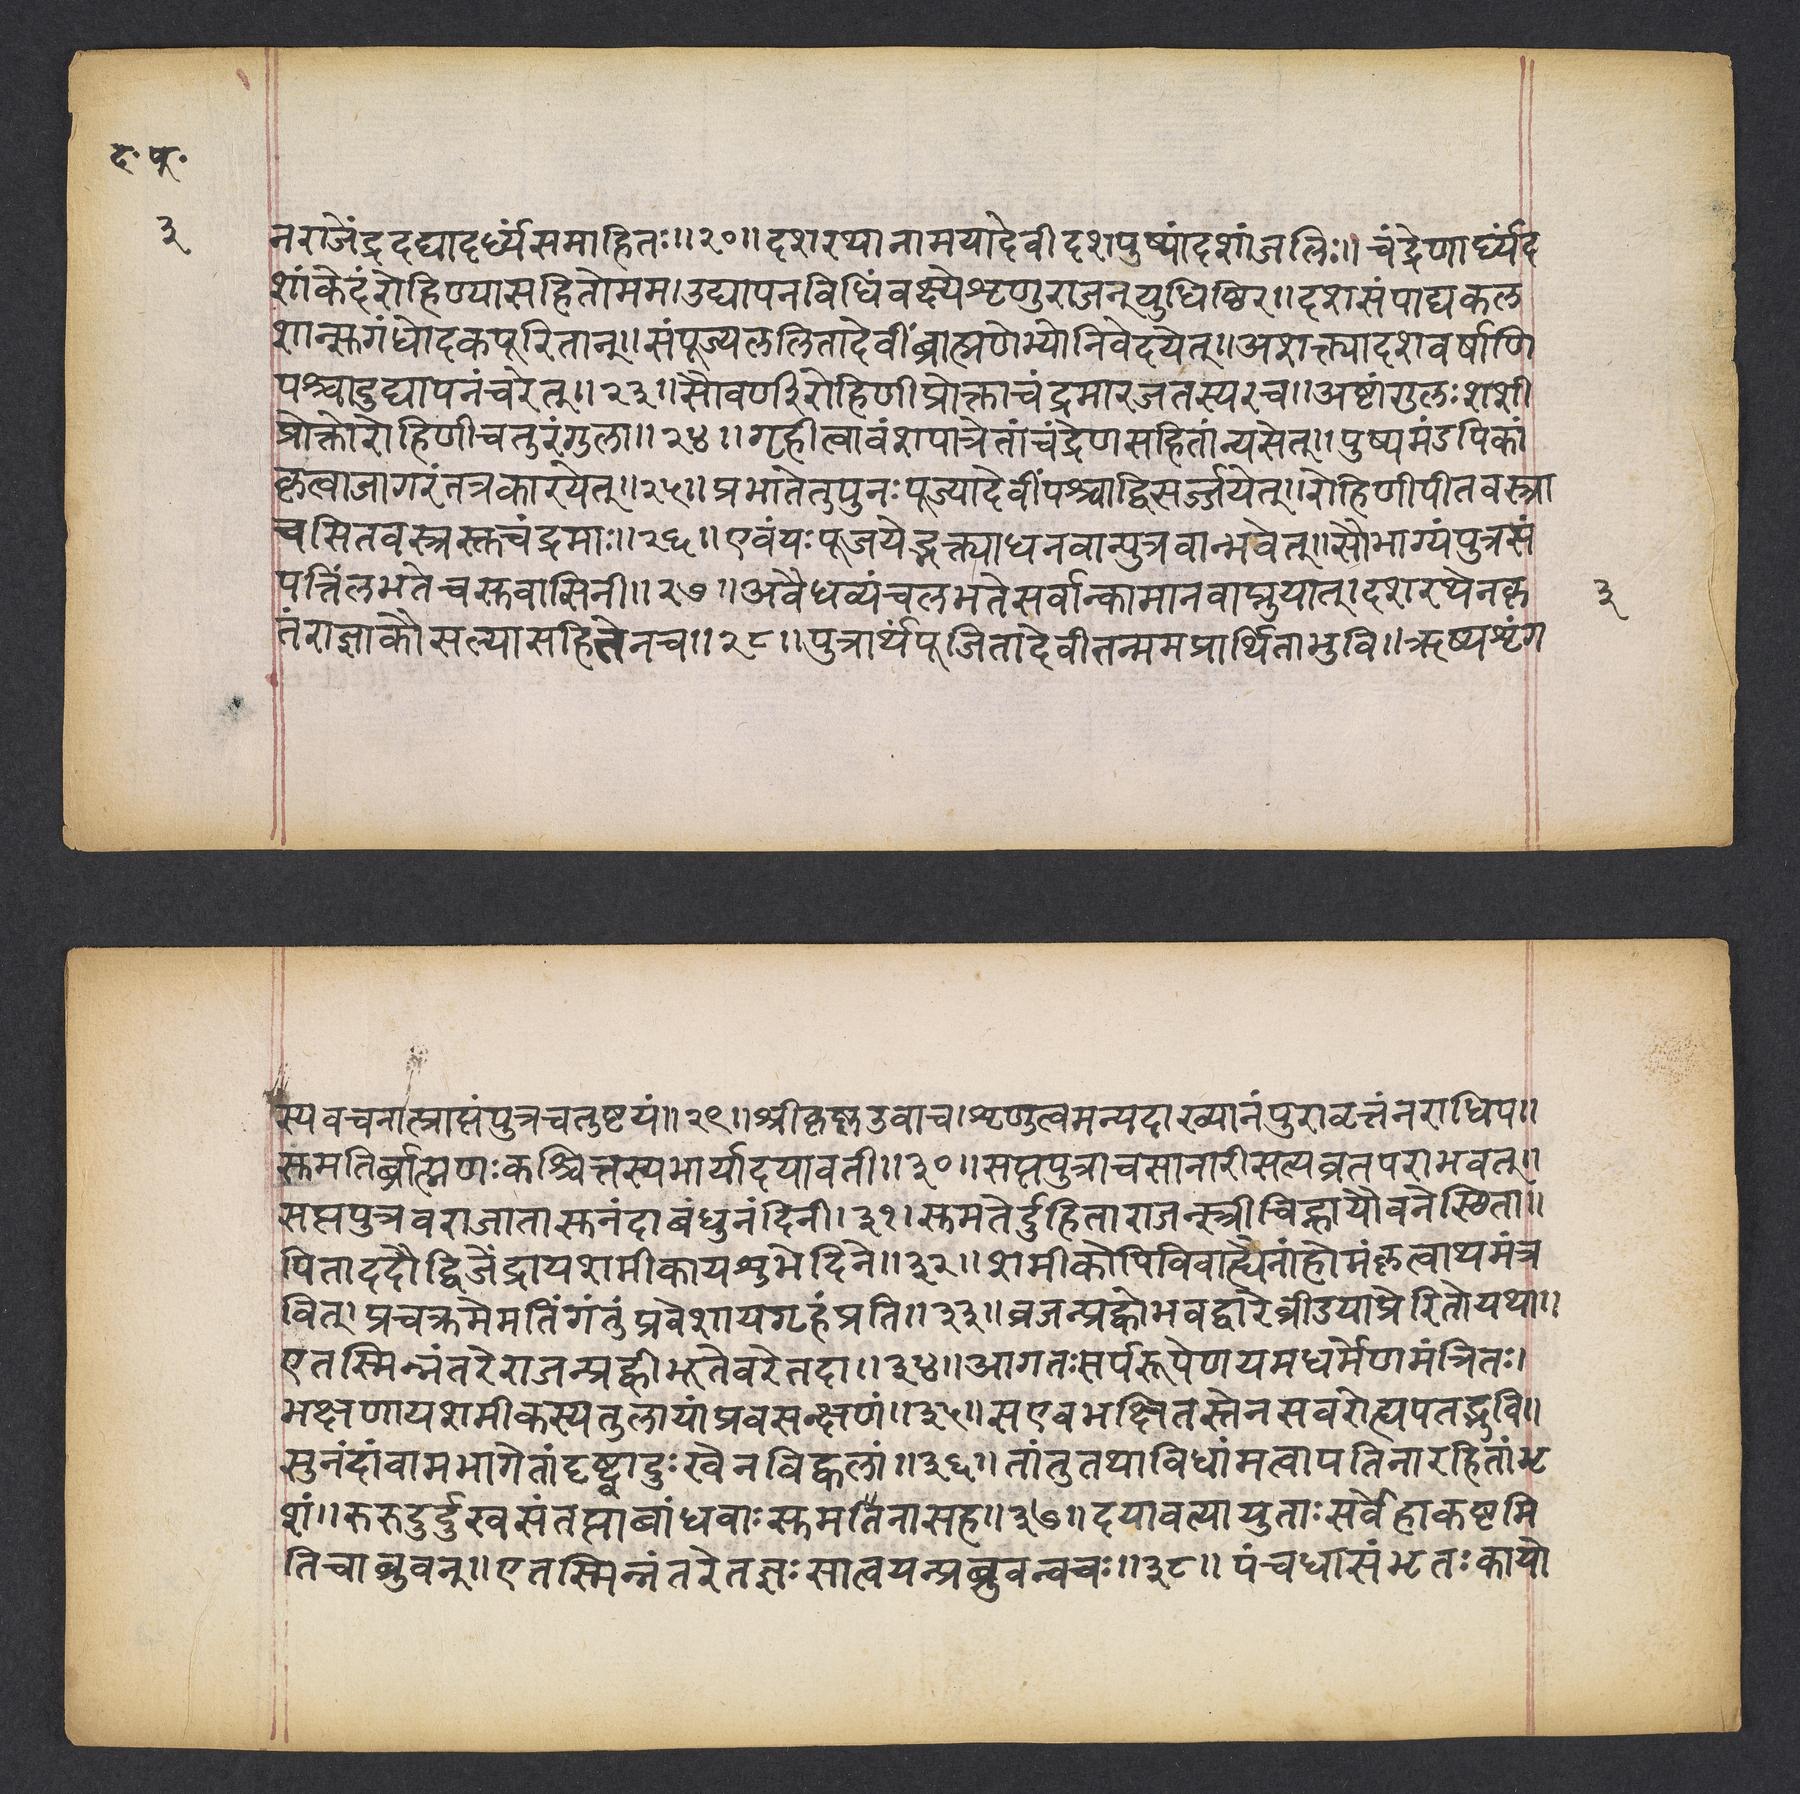 द॰ पू॰
३
नराजेंद्रदद्यादर्घ्यंसमाहितः॥२०॥दशरथानामयादेवीदशपुष्पांदशांजलिः॥चंद्रेणार्घ्यंद
शांकेदंरोहिण्यासहितोमम।उद्यापनविधिंवक्ष्येशृणुराजन्युधिष्ठिर॥दशसंपाद्यकल
शान्सुगंधोदकपूरितान्॥संपूज्यललितादेवींब्राह्मणेभ्योनिवेदयेत्॥अशक्त्यादशवर्षाणि
पश्चादुद्यापनंचरेत्॥२३॥सौवर्णारोहिणीप्रोक्ताचंद्रमारजतस्यच॥अष्टांगुलःशशी
प्रोक्तोरोहिणीचतुरंगुला॥२४॥गृहीत्वावंशपात्रेतांचंद्रेणसहितांन्यसेत्॥पुष्पमंडपिकां
कृत्वाजागरंतत्रकारयेत्॥२५॥प्रभातेतुपुनःपूज्यादेवींपश्चाद्विसर्ज्जयेत्॥रोहिणीपीतवस्त्रा
चसितवस्त्रस्तुचंद्रमाः॥२६॥एवंयःपूजयेद्भक्त्याधनवान्पुत्रवान्भवेत्॥सौभाग्यंपुत्रसं
पत्तिंलभतेचसुवासिनी॥२७॥अवैधव्यंचलभतेसर्वान्कामानवाप्नुयात्।दशरथेनकृ
३
तंराज्ञाकौसल्यासहितेनच॥२८॥पुत्रार्थंपूजितादेवीतन्ममप्रार्थिताभुवि॥ऋष्यशृंग
स्यवचनात्प्राप्तंपुत्रचतुष्टयं॥२९॥श्रीकृष्णउवाच।शृणुत्वमन्यदाख्यानंपुरावृत्तंनराधिप॥
सुमतिर्ब्राह्मणःकश्चित्तस्यभार्यादयावती॥३०॥सप्तपुत्राचसानारीसत्यव्रतपराभवत्॥
सप्तपुत्रवराजातासुनंदाबंधुनंदिनी।३१।सुमतेर्दुहिताराजन्स्त्रीचिह्नायौवनेस्थिता॥
पिताददौद्विजेंद्रायशमीकायशुभेदिने॥३२॥शमीकोपिविवाह्यैनांहोमंकृत्वाथमंत्र
वित्।प्रचक्रमेमतिंगंतुंप्रवेशायगृहंप्रति॥३३॥व्रजन्प्रह्वोभवद्द्वारेव्रीडयाप्रेरितोयथा॥
एतस्मिन्नंतरेराजन्प्रह्वीभूतेवरेतदा॥३४॥आगतःसर्परूपेणयमधर्मेणमंत्रितः।
भक्षणायशमीकस्यतुलायांप्रवसन्क्षणं॥३५॥सएवभक्षितस्तेनसवरोह्यपतद्भुवि॥
सुनंदांवामभागेतांदृष्ट्वादुःखेनविह्वलां॥३६॥तांतुतथाविधांमत्वापतिनारहितांभृ
शं॥रुरुदुर्दुखसंतप्ताबांधवाःसुमतिनासह॥३७॥दयावत्यायुताःसर्वेहाकष्टमि
तिचाब्रुवन्॥एतस्मिन्नंतरेतज्ञःसांत्वयन्प्रब्रुवन्वचः॥३८॥पंचधासंभृतःकायो